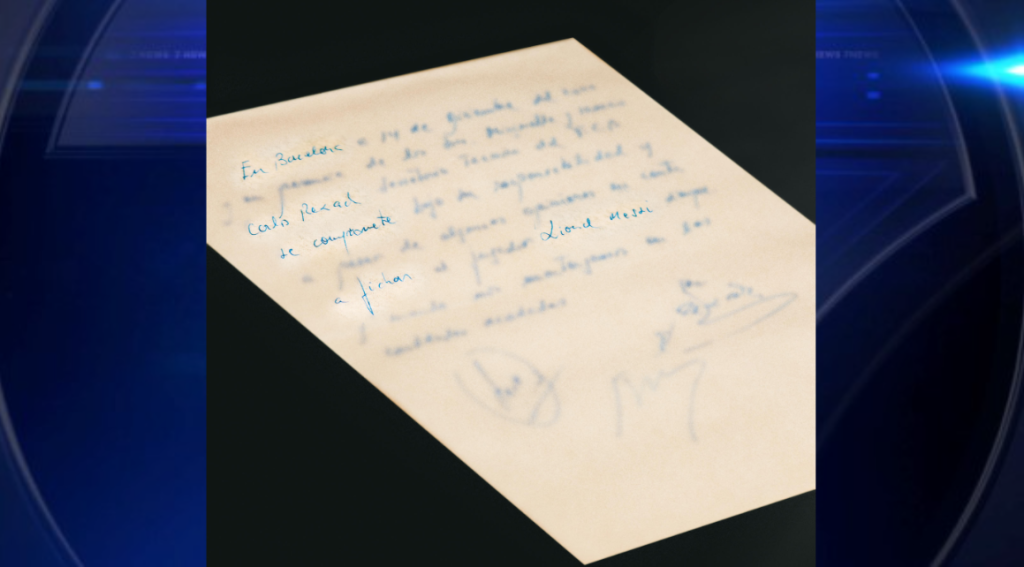 En Barcelona a 14 de Diciembre del
en presencia de los Minguella y Horacio
Carles Rexach Secretario Técnico del F.C.B.
se compromete bajo su responsabilidad y
a pesar de algunas opiniones en contra
a fichar al jugador Lionel Messi siempre
y cuando nos mantengamos en las
cantidades acordadas